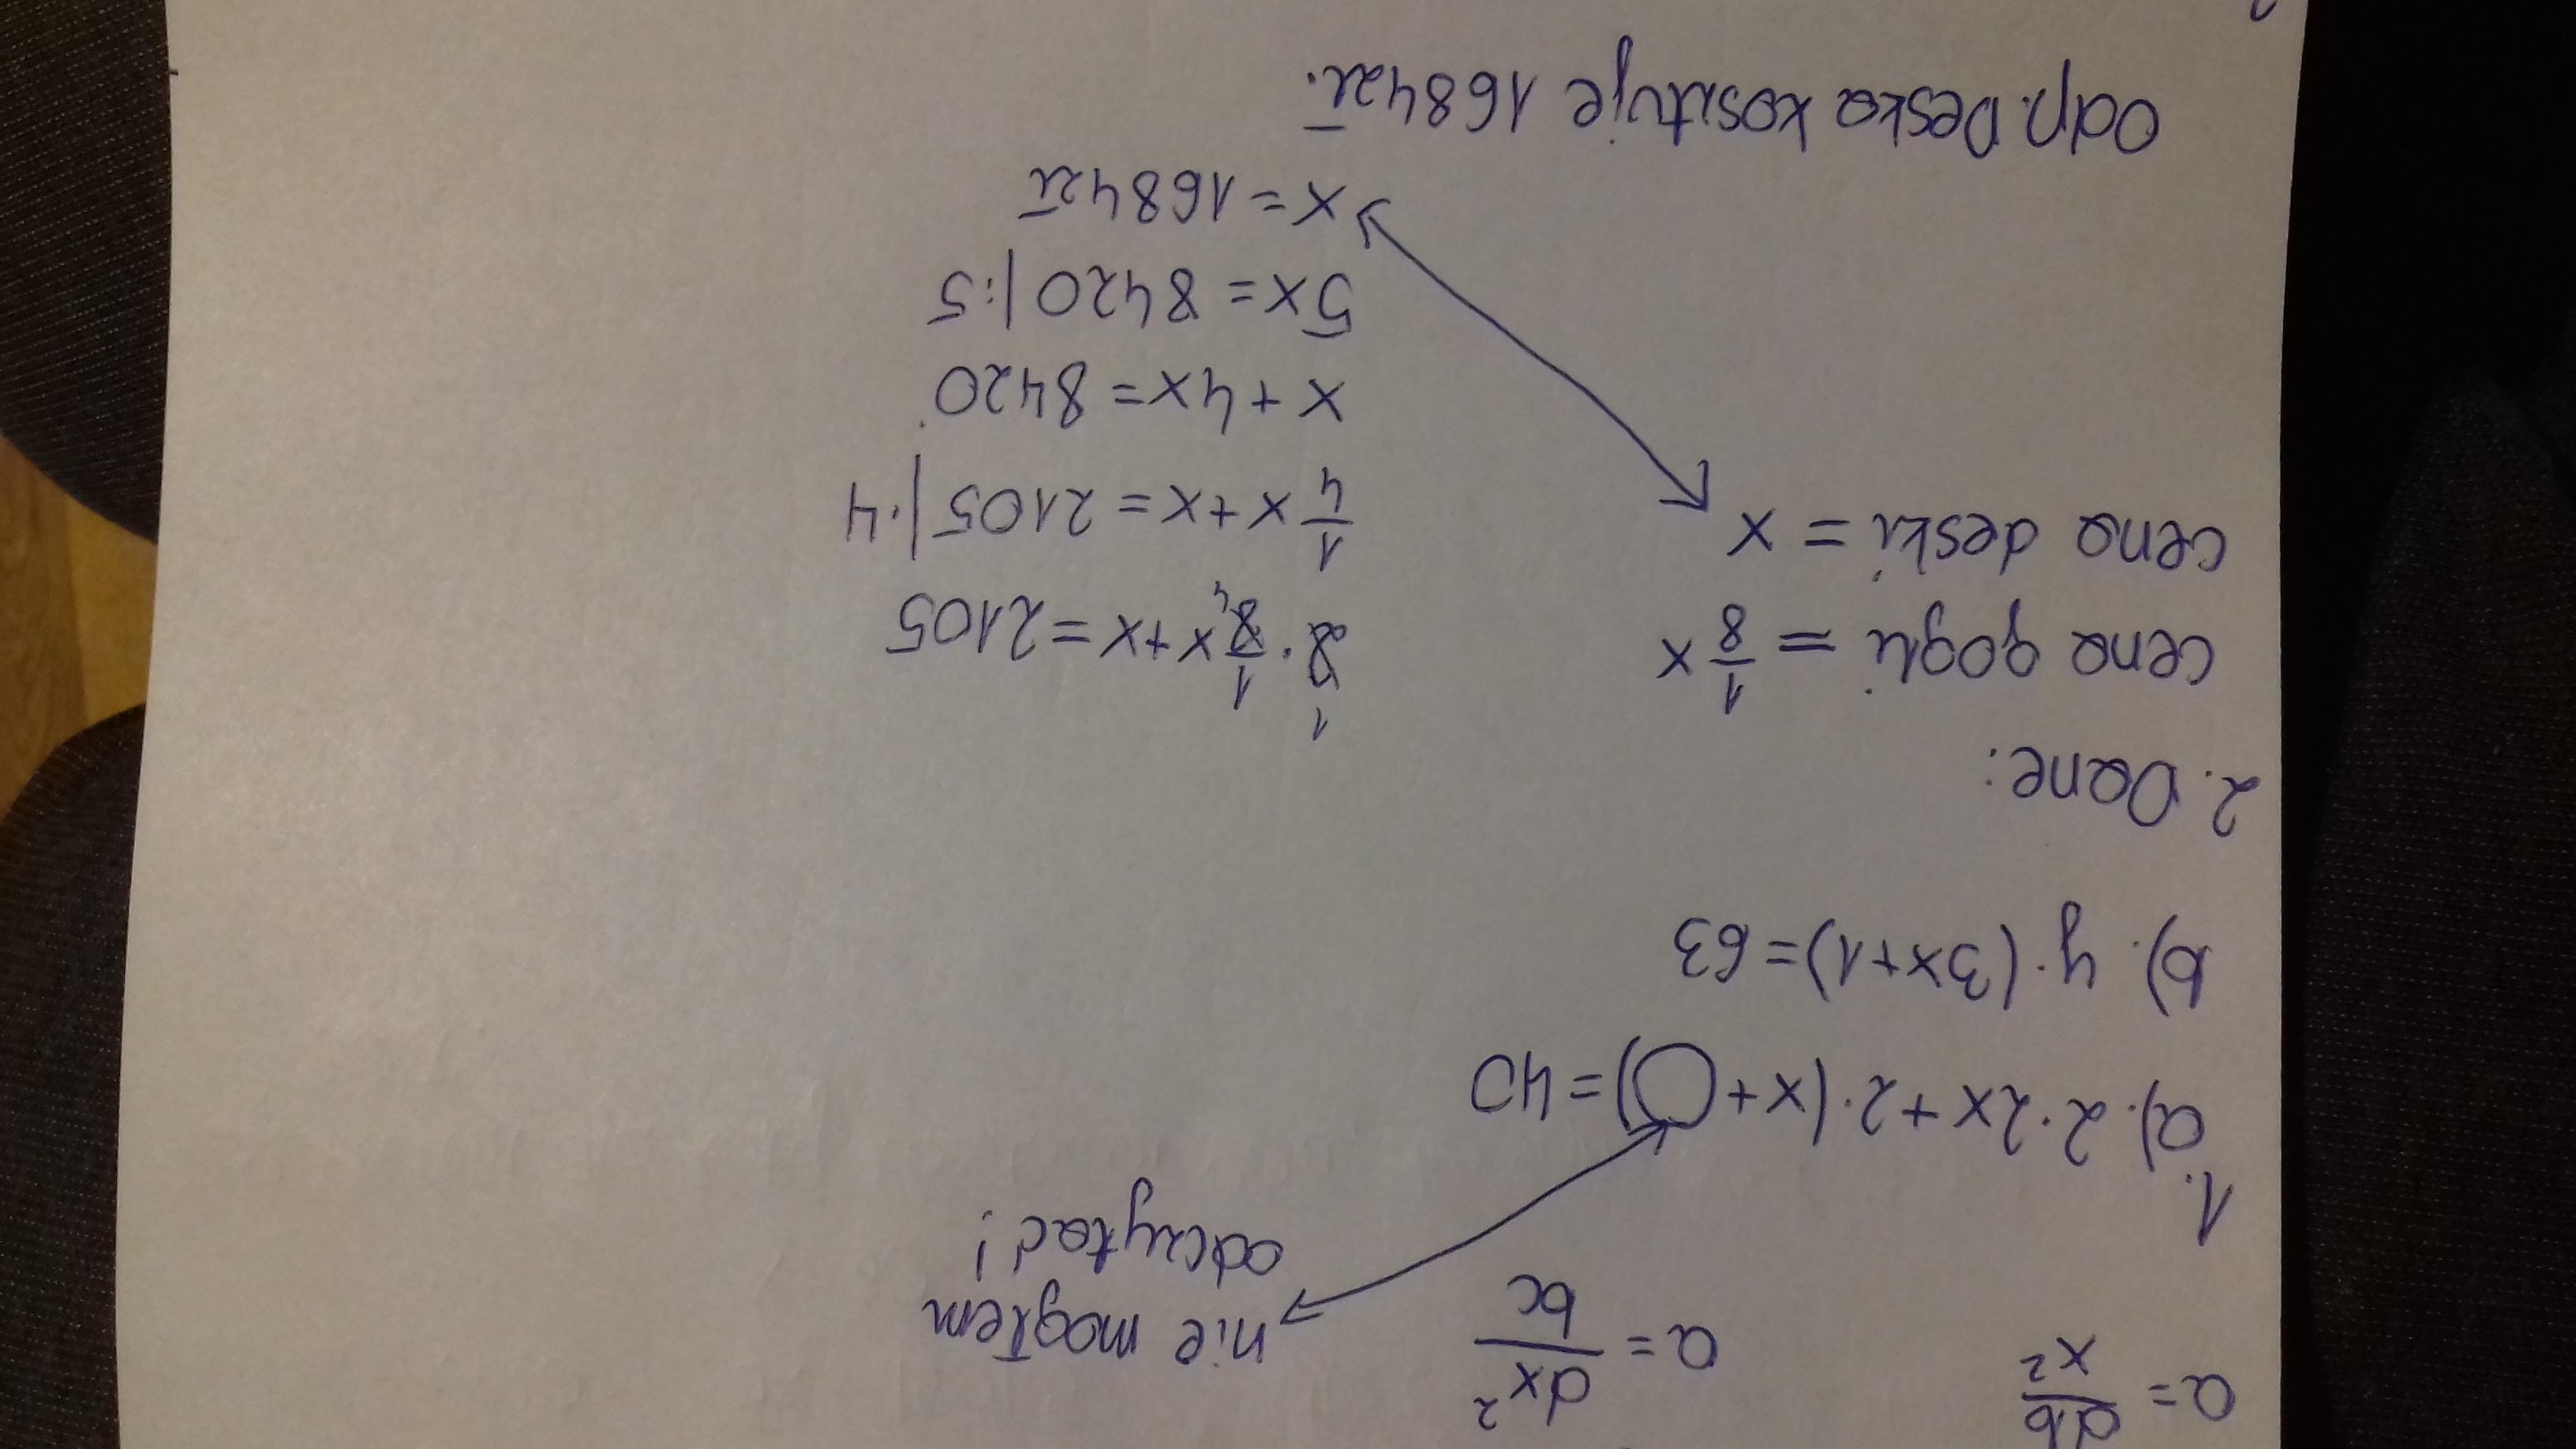 a = db/x²
a = dx²/bc
nie mogłem
odczytać!
1.
a). 2·2x+2·(x+◯)=40
b). y·(3x+1)=63
2. Dane:
cena gogli = 1/8 x
cena deski = x
2·1/8 x+x=2105
1/4 x+x=2105 |·4
x+4x=8420
5x=8420 |:5
x=1684zł
Odp. Deska kosztuje 1684zł.